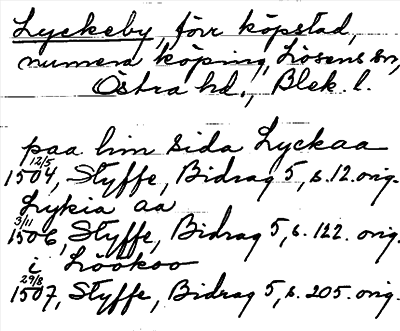 Lyckeby, förr köpstad,
numera köping, Lösens sn,
Östra hd., Blek. l.
paa lim sida Lyckaa
12/5
1504, Styffe, Bidrag 5, s. 12. orig.
Lykia aa
3/11
1506, Styffe, Bidrag 5, s. 122. orig.
i Löökoo
29/8
1507, Styffe, Bidrag 5, s. 205. orig.